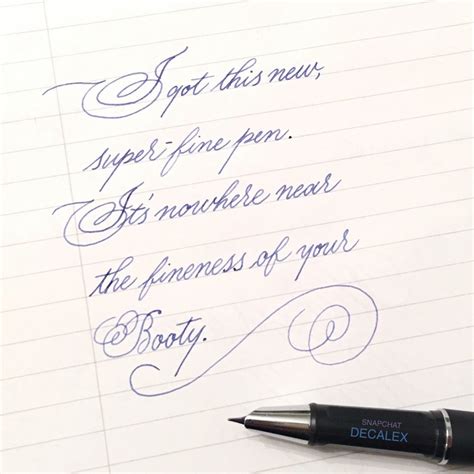 I got this new,
super-fine pen.
It's nowhere near
the fineness of your
Booty.
SNAPCHAT
DECALEX